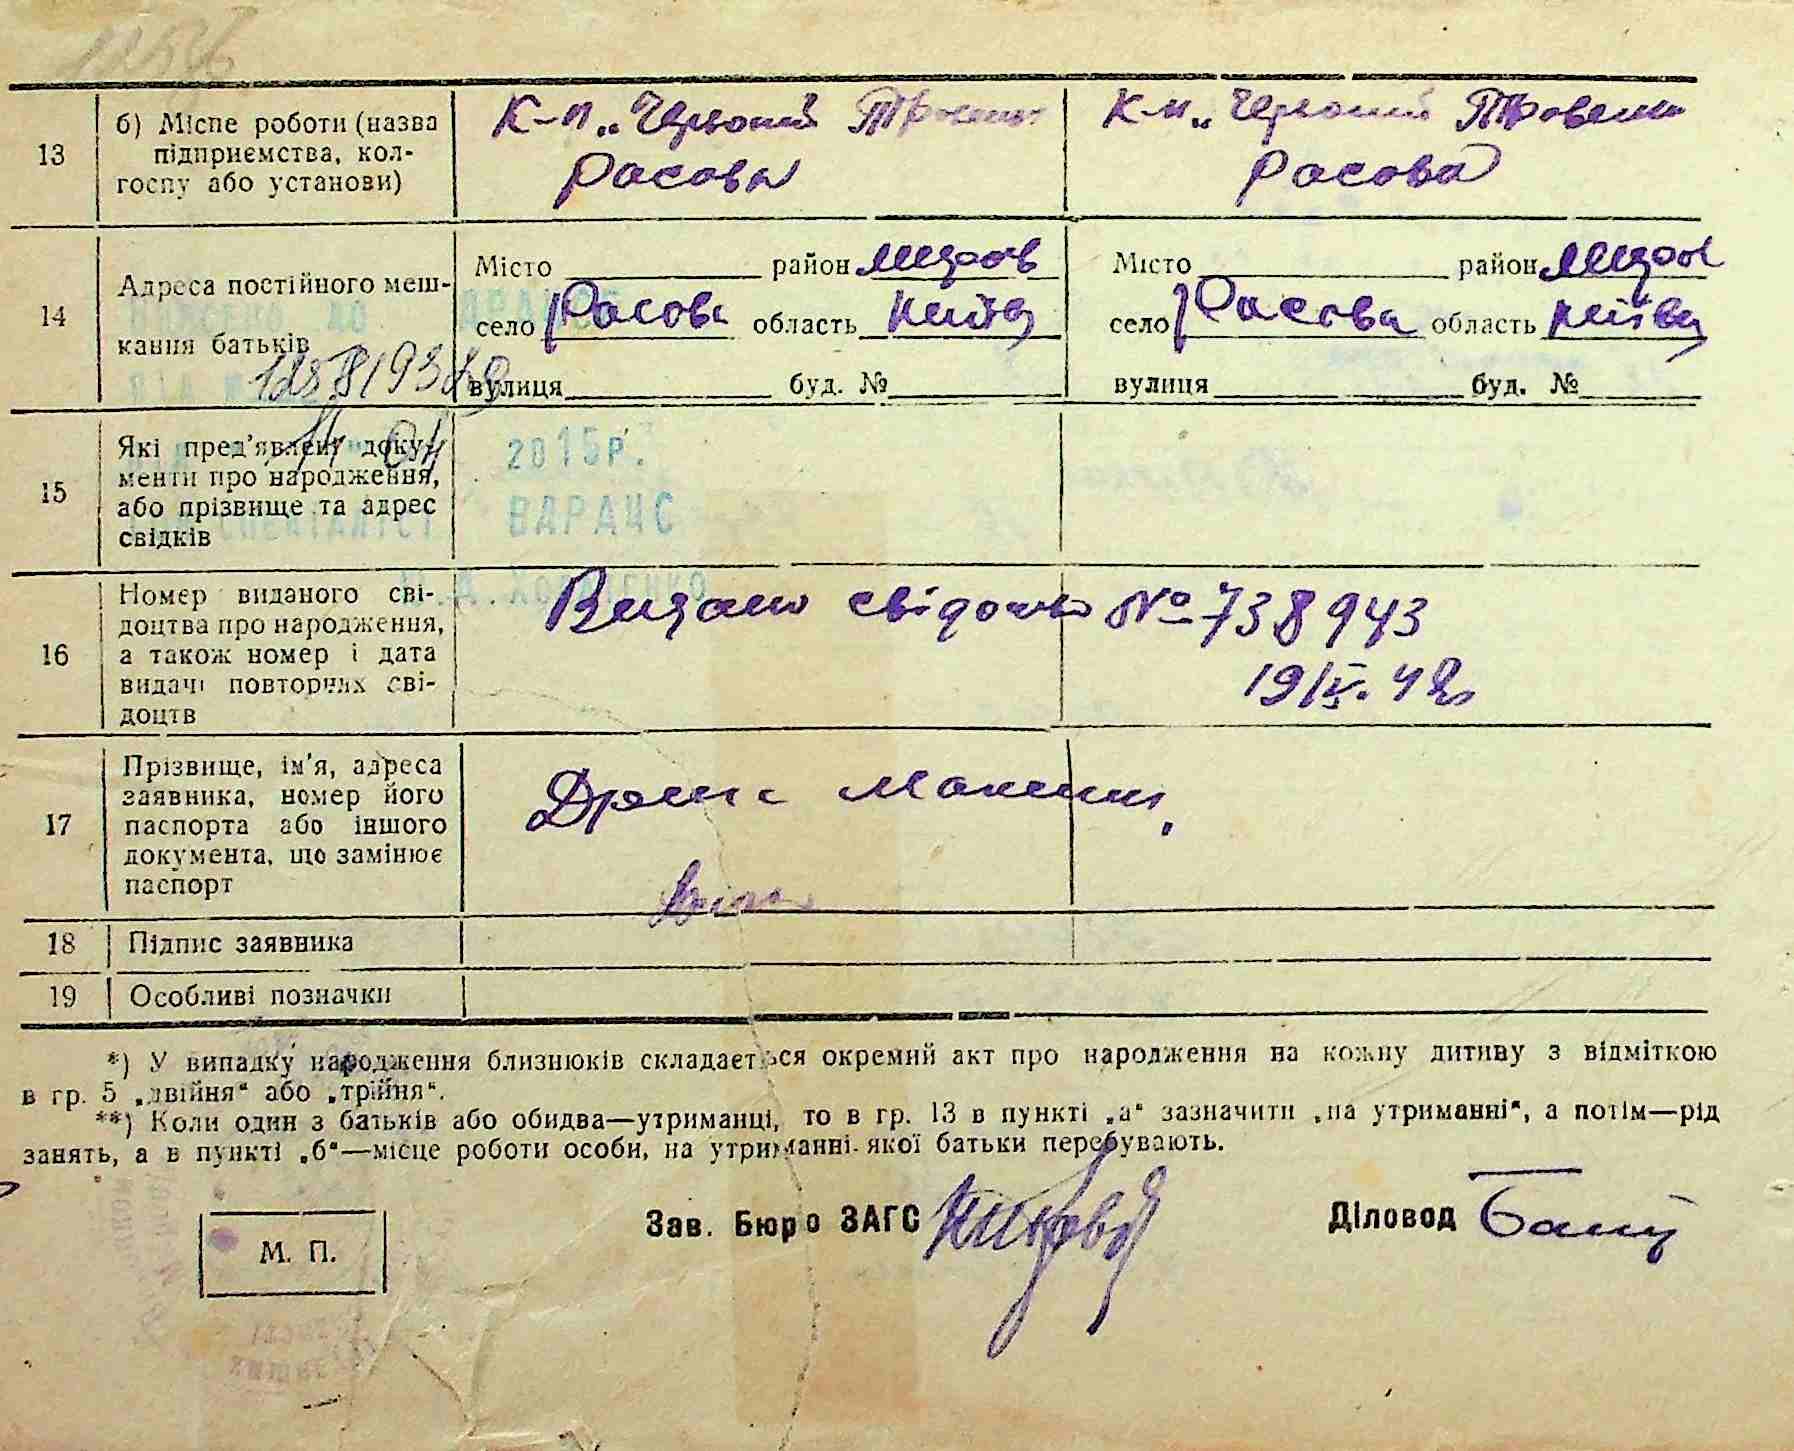 13
б) Місце роботи (назва
підприємства, кол-
госпу або установи)
К-п „Червоний
Расова
К-п „Червоний
Расова
14
Адреса постійного меш-
кання батьків
Місто район
село Расова область
вулиця буд. №
Місто район
село Расова область
вулиця буд. №
15
Які пред'явлені доку-
менти про народження,
або прізвище та адрес
свідків
2015р.
ВАРАЦС
16
Номер виданого сві-
доцтва про народження,
а також номер і дата
видачі повторних сві-
доцтв
Видано свідоцтво № 738943
19/IV. 48
17
Прізвище, ім'я, адреса
заявника, номер його
паспорта або іншого
документа, що замінює
паспорт
18
Підпис заявника
19
Особливі позначки
*) У випадку народження близнюків складається окремий акт про народження на кожну дитину з відміткою
в гр. 5 „двійня“ або „трійня“.
**) Коли один з батьків або обидва—утриманці, то в гр. 13 в пункті „а“ зазначити „на утриманні“, а потім—рід
занять, а в пункті „б“—місце роботи особи, на утриманні якої батьки перебувають.
М. П.
Зав. Бюро ЗАГС
Діловод